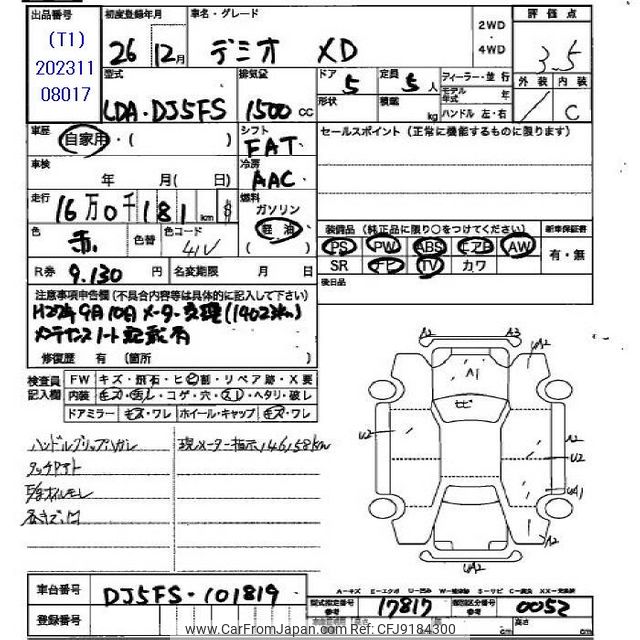 出品番号 初度登録年月 車名・グレード 2WD・4WD 評価点
(T1)
202311
08017
26 12月 デミオ XD 3.5
外装 内装
C
型式 排気量 ドア 定員 フィーラー・並行
LDA・DJ5FS 1500cc 5 5人
形状 積載 kg モデル年式 年
ハンドル 左・右
車歴 自家用・( ) シフト FAT
セールスポイント (正常に機能するものに限ります)
車検 年 月( 日) 冷房 AAC
走行 16万0千181km 燃料 ガソリン 軽油 ( )
色 赤 色替 色コード 41V
装備品 (純正品に限り○をつけてください) 新車保証書
PS PW ABS エアB AW 有・無
SR ナビ TV カワ
後日品
R券 9,130円 名変期限 月 日
注意事項申告欄(不具合内容等は具体的に記入して下さい)
H27年9月10日メーター交換(1402
メンテナンスノート記載有
修復歴 有 (箇所 )
検査員記入欄 FW キズ・飛石・ヒビ割・リペア跡・X要
内装 キズ・汚レ・コゲ・穴・スレ・ヘタリ・破レ
ドアミラー キズ・ワレ ホイール・キャップ キズ・ワレ
ハンドルグリップハガレ 現メーター指示146158km
タッチアト
各キズ凹
A2 A3
A1
U2
A2
U2
A2
A=キズ E=エクボ U=凹み W=補修跡 S=サビ C=腐食 XX=交換跡
車台番号 DJ5FS-101819
登録番号
型式指定番号 参考 17817 類別区分番号 参考 0052
cm 高さ cm
www.CarFromJapan.com Ref: CFJ9184300